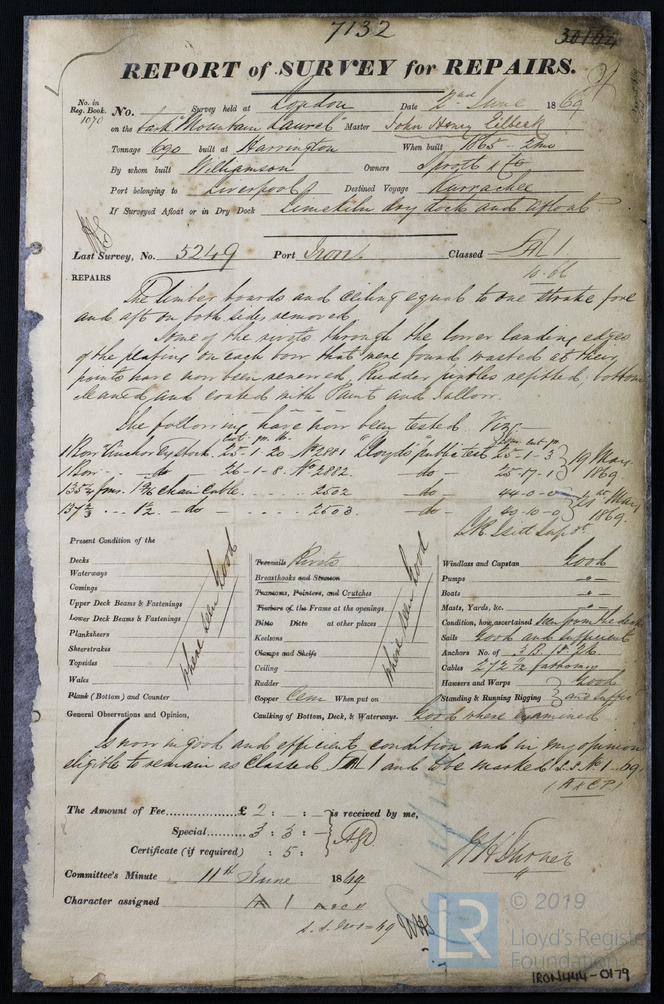 7132
30164
REPORT of SURVEY for REPAIRS.
No. in Reg. Book. 1070
No. Survey held at London Date 2nd June 1869
on the Bark "Mountain Laurel" Master John Henry Eilbeck
Tonnage 690 built at Harrington When built 1865 - 2mo
By whom built Williamson Owners Sprott & Co
Port belonging to Liverpool Destined Voyage Kurrachee
If Surveyed Afloat or in Dry Dock Limekiln dry dock and afloat
Last Survey, No. 5249 Port Iron. Classed A 1
10.66
REPAIRS
The limber boards and ceiling equal to one strake fore
and aft on both sides removed
Some of the rivets through the lower landing edges
of the plating on each bow that were found wasted at their
points have now been renewed, Rudder pintles refitted; bottom
cleaned and coated with Paint and Tallow.
The following have now been tested Viz.
1 Bow Anchor 25-1-20 No 2881 "Lloyds" public test 25-1-3
1 Bow - do 26-1-8 No 2882 - do - 25-17-1 } 19 May 1869
135 fms. 1 9/16 chain Cable 2502 - do - 44-0-0
137 1/2 - do - 2503 - do - 40-10-0 May 1869.
Present Condition of the
Decks
Waterways
Comings
Upper Deck Beams & Fastenings
Lower Deck Beams & Fastenings
Planksheers
Sheerstrakes
Topsides
Wales
Plank (Bottom) and Counter
where seen Good
Treenails Rivets
Breasthooks and Stemson
Transoms, Pointers, and Crutches
Timbers of the Frame at the openings
Ditto Ditto at other places
Keelsons
Clamps and Shelfs
Ceiling
Rudder
Copper Cem When put on
where seen Good
Windlass and Capstan Good
Pumps "
Boats "
Masts, Yards, &c. "
Condition, how ascertained seen from the deck
Sails Good and sufficient
Anchors No. of 3 B. 1 S. 2 K
Cables 272 1/2 fathoms
Hawsers and Warps Good
Standing & Running Rigging and suffict
General Observations and Opinion,
Caulking of Bottom, Deck, & Waterways. Good where examined
Is now in good and efficient condition and in my opinion
eligible to remain as Classed A 1 and to be marked S.S. No 1 - 69
(A & C P)
The Amount of Fee £ 2 : - : - is received by me,
Special 3 : 3 : -
Certificate (if required) : 5 :
Committee's Minute 11th June 1869
Character assigned A 1 A & C P
S. S. No 1 - 69
LR
© 2019
Lloyd's Register
Foundation
IRON444-0179